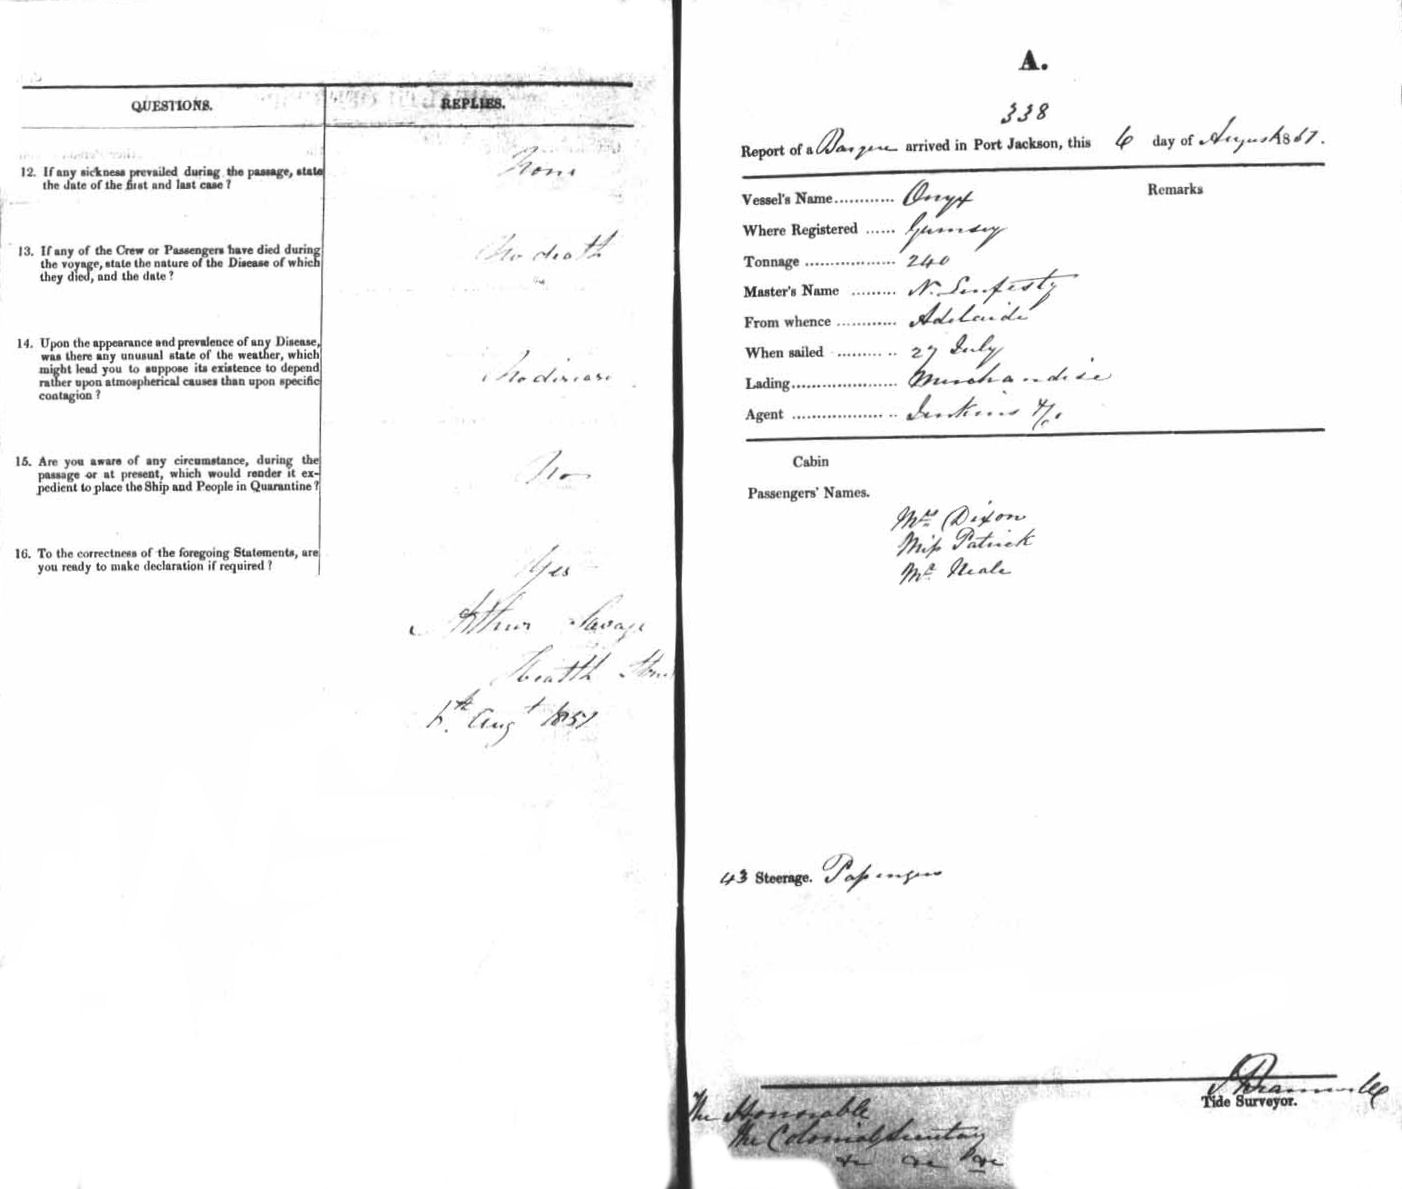 QUESTIONS.
REPLIES.
12. If any sickness prevailed during the passage, state
the date of the first and last case?
None
13. If any of the Crew or Passengers have died during
the voyage, state the nature of the Disease of which
they died, and the date?
No death
14. Upon the appearance and prevalence of any Disease,
was there any unusual state of the weather, which
might lead you to suppose its existence to depend
rather upon atmospherical causes than upon specific
contagion?
No disease
15. Are you aware of any circumstance, during the
passage or at present, which would render it ex-
pedient to place the Ship and People in Quarantine?
No
16. To the correctness of the foregoing Statements, are
you ready to make declaration if required?
Yes
Arthur Savage
Health
6th Augt 1851
A.
338
Report of a arrived in Port Jackson, this 6 day of August 1851.
Vessel's Name............ Onyx
Remarks
Where Registered ...... Gurnsey
Tonnage .................. 240
Master's Name ......... N. Lenfesty
From whence ............ Adelaide
When sailed ............ 27 July
Lading..................... Merchandise
Agent .................... Jenkins & Co
Cabin
Passengers' Names.
Mrs Dixon
Miss Patrick
Mr Neale
43 Steerage. Passengers
Tide Surveyor.
The Honorable
The Colonial Secretary
&c &c &c